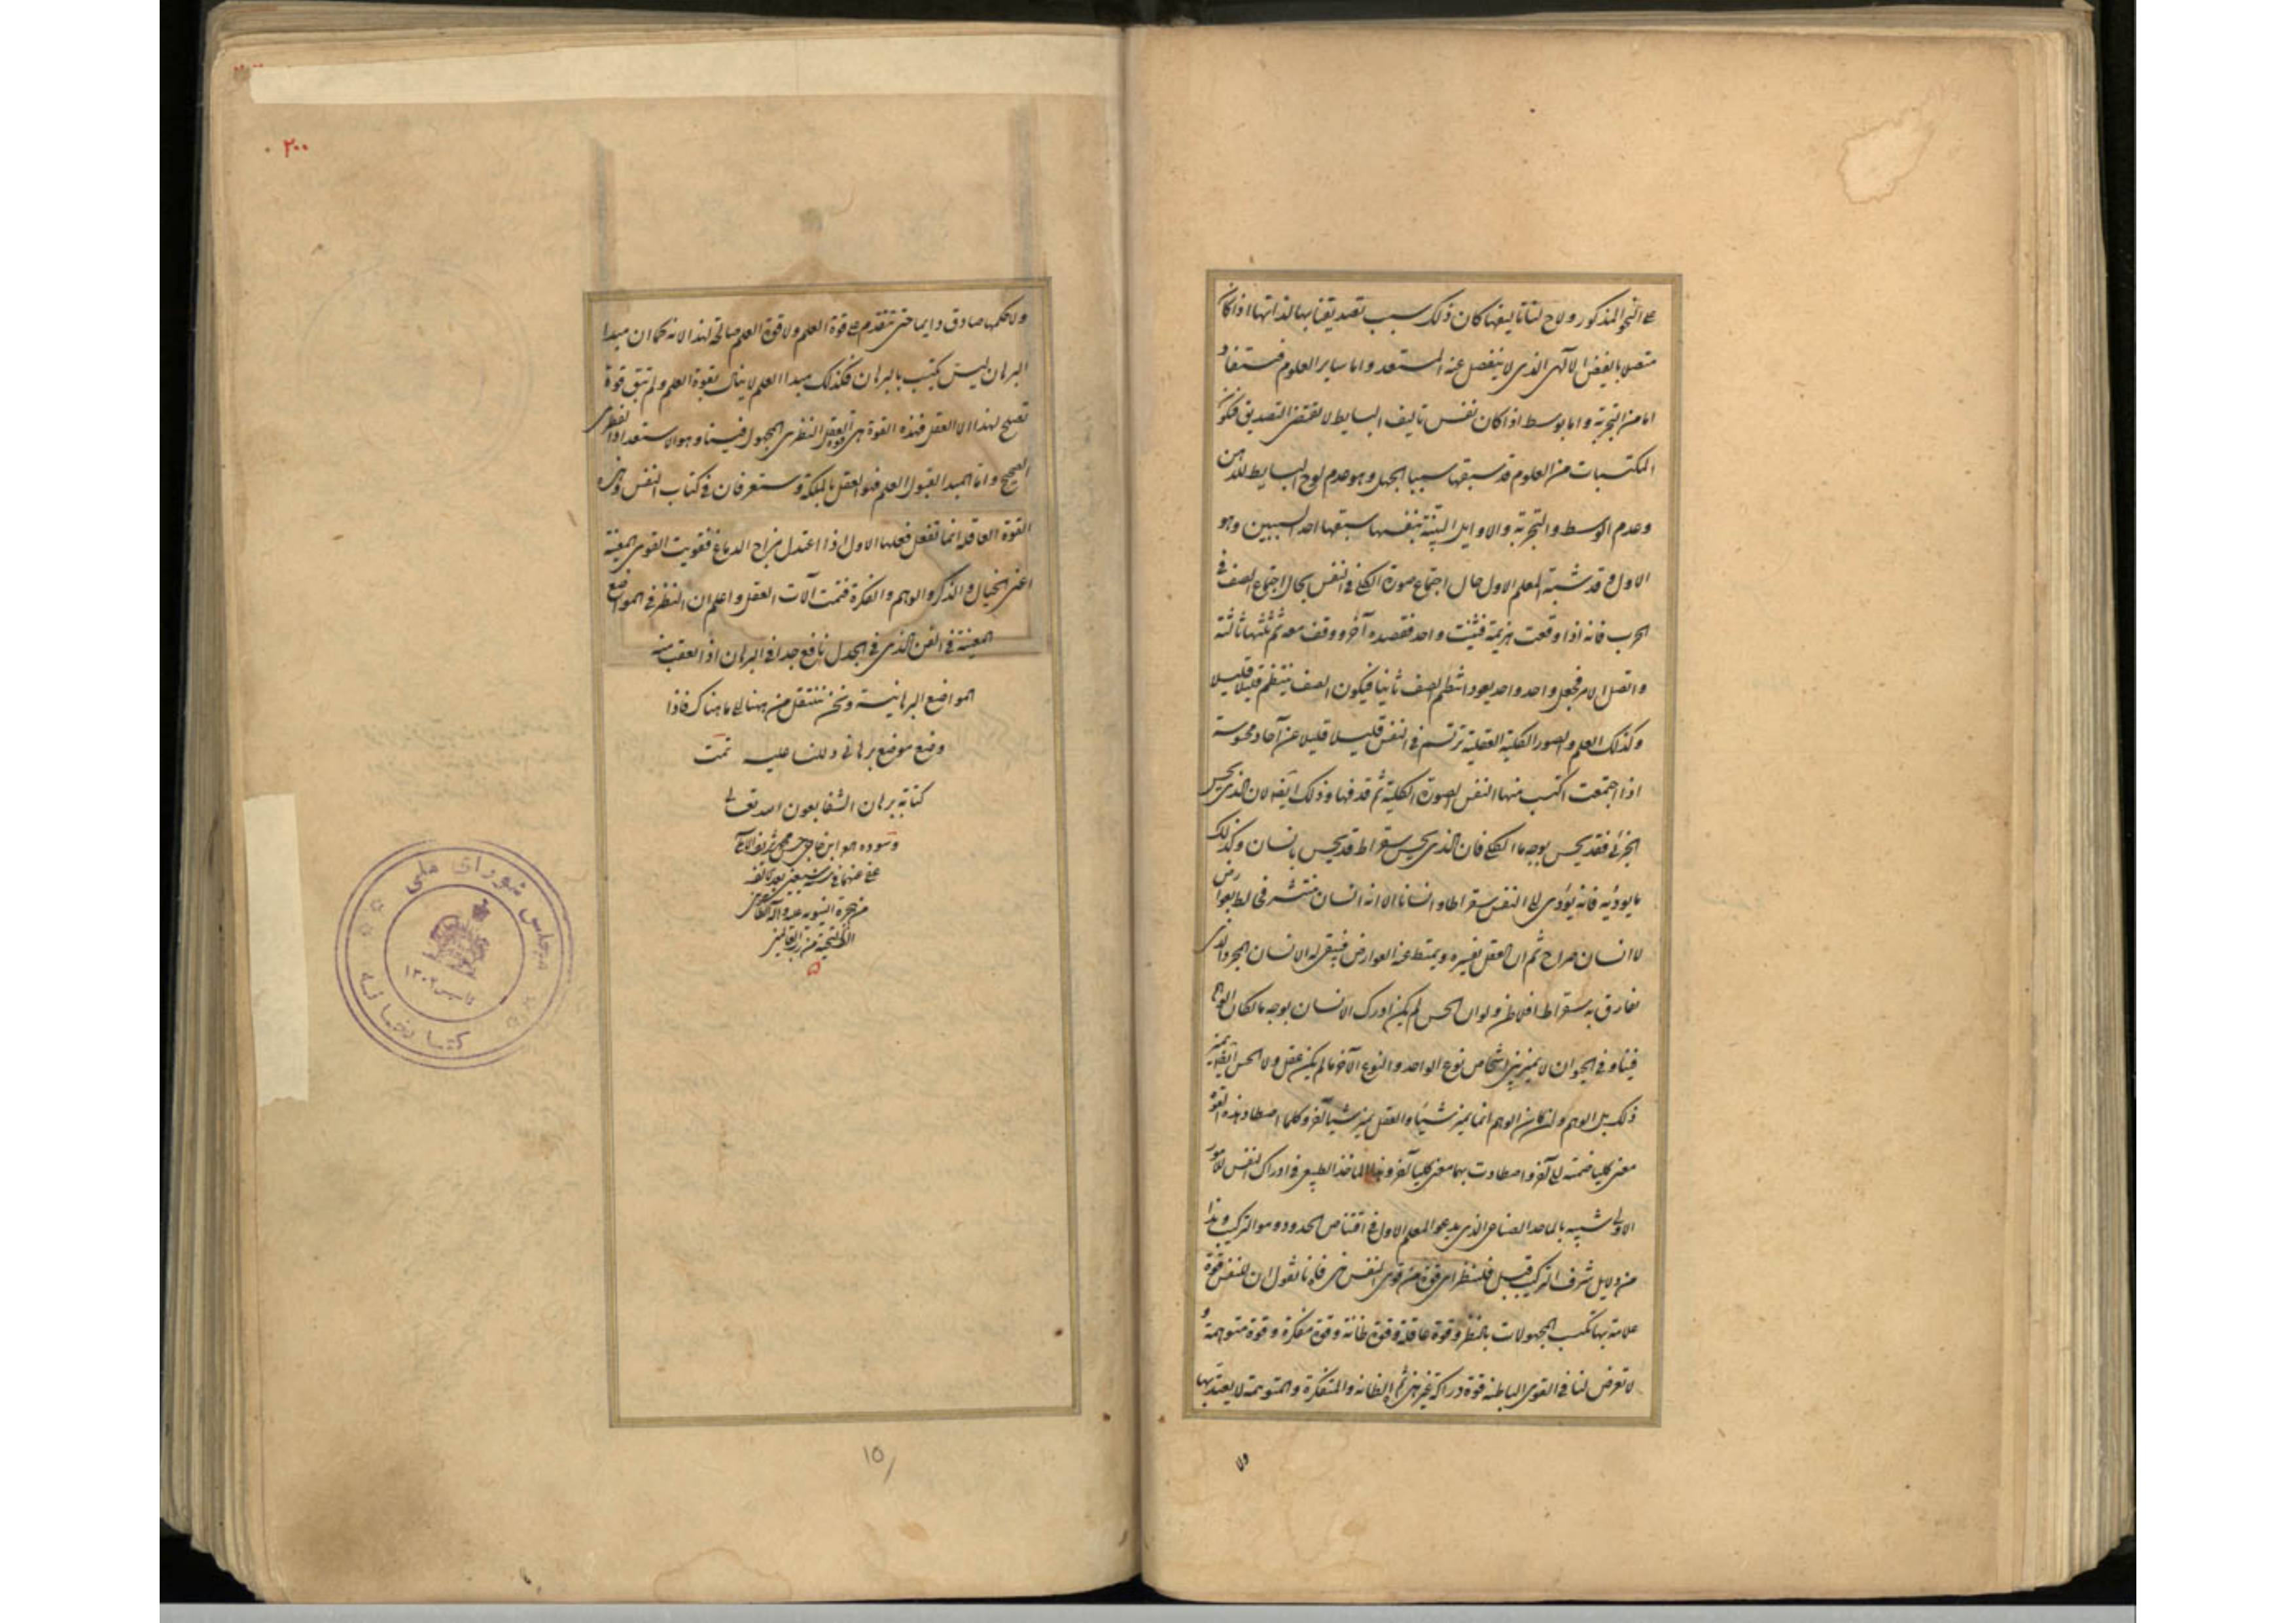 على النحو المذكور ولاح لنا تاليفها كان ذلك سبب تصديقنا بها لذاتها اذا كان
متصلا بالفيض الالهى الذى لا ينفصل عنه المستعد واما ساير العلوم فستفاد
اما من التجربة واما بوسط اذا كان نفس تاليف البسايط لا تقتضى التصديق فيكون
المكتسبات من العلوم قد سبقها سببا الجهل وهو عدم لوح البسايط للذهن
وعدم الوسط والتجربة والاوايل البينة بنفسها سبقها احد السببين وهو
الاول وقد شبه المعلم الاول حال اجتماع صورة الكلى فى النفس بحال اجتماع الصف فى
الحرب فانه اذا وقعت هزيمة فثبت واحد فقصده آخر ووقف معه ثم ثلثهما ثالث
واتصل الامر فجعل واحد واحد يعود انتظم الصف ثانيا فيكون الصف ينتظم قليلا قليلا
وكذلك العلم والصور الكلية العقلية ترتسم فى النفس قليلا قليلا عن آحاد محسوسة
اذا اجتمعت اكتسب منها النفس الصورة الكلية ثم قذفها وذلك ايضا لان الذى يحس
الجزئى فقد يحس بوجه ما الكلى فان الذى يحس بسقراط قد يحس بانسان وكذلك
ما يؤديه فانه يؤدى الى النفس سقراطا وانسانا الا انه انسان منتشر مخالط بعوارض
لا انسان صراح ثم ان العقل يقشره ويميط عنه العوارض فيبقى له الانسان المجرد الذى
لا يفارق به سقراط افلاطن ولو ان الحس لم يكن ادرك الانسان بوجه ما لكان الوهم
فينا وفى الحيوان لا يميز بين اشخاص نوع الواحد والنوع الآخر ما لم يكن عقل ولا الحس ايضا يميز
ذلك بل الوهم وان كان الوهم انما يميز شيئا والعقل يميز شيئا آخر وكلما اصطادت هذه القوة
معنى كليا ضمته الى آخر واصطادت بهما معنى كليا آخر وهذا الماخذ الطبيعى فى ادراك النفس للامور
الاولى شبيه بالماخذ الصناعى الذى يدعو المعلم الاول فى اقتناص الحدود وهو التركيب وهذا
من دلايل شرف التركيب قيل فلينظر اى قوة من قوى النفس هى فانا نقول ان للنفس قوة
علامة بها تكتسب المجهولات بالنظر وقوة عاقلة وقوة ظانة وقوة مفكرة وقوة متوهمة و
لا تعرض لنا فى القوى الباطنة قوة دراكة غير هى ثم الظانة والمتفكرة والمتوهمة لا يعتد بها
ولا
٢٠٠
ولا حكمها صادق دايما حتى تتقدم على قوة العلم ولا قوة العلم صالحة لهذا لانه كما ان مبدا
البرهان ليس يكتسب بالبرهان فكذلك مبدا العلم لا ينال بقوة العلم ولم تبق قوة
تصلح لهذا الا العقل فهذه القوة هى قوة العقل النظرى المجبول فينا وهو الاستعداد الفطرى
الصحيح واما المبدا لقبول العلم فهو العقل بالملكة وستعرفان فى كتاب النفس وغيره
القوة العاقلة انما تفعل فعلها الاول اذا اعتدل مزاج الدماغ فقويت القوى المعينة
اعنى الخيال والذكر والوهم والفكرة فتمت آلات العقل واعلم ان النظر فى المواضع
المعينة فى الفن الذى فى الجدل نافع جدا فى البرهان اذا تعقب منه
المواضع البرهانية ونحن ننتقل من ههنا الى ما هناك فاذا
وضع موضع برهانى دللنا عليه تمت
كتابة برهان الشفا بعون الله تعالى
من هجرة النبوية عليه وآله
مجلس شورای ملی
تاسیس ۱۳۰۲
کتابخانه
۱۵